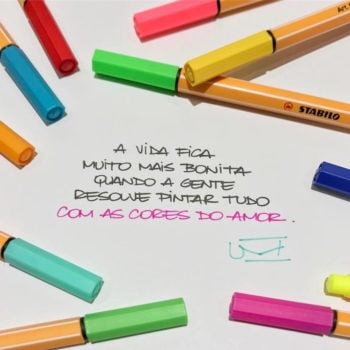 STABILO
A VIDA FICA
MUITO MAIS BONITA
QUANDO A GENTE
RESOLVE PINTAR TUDO
COM AS CORES DO AMOR.